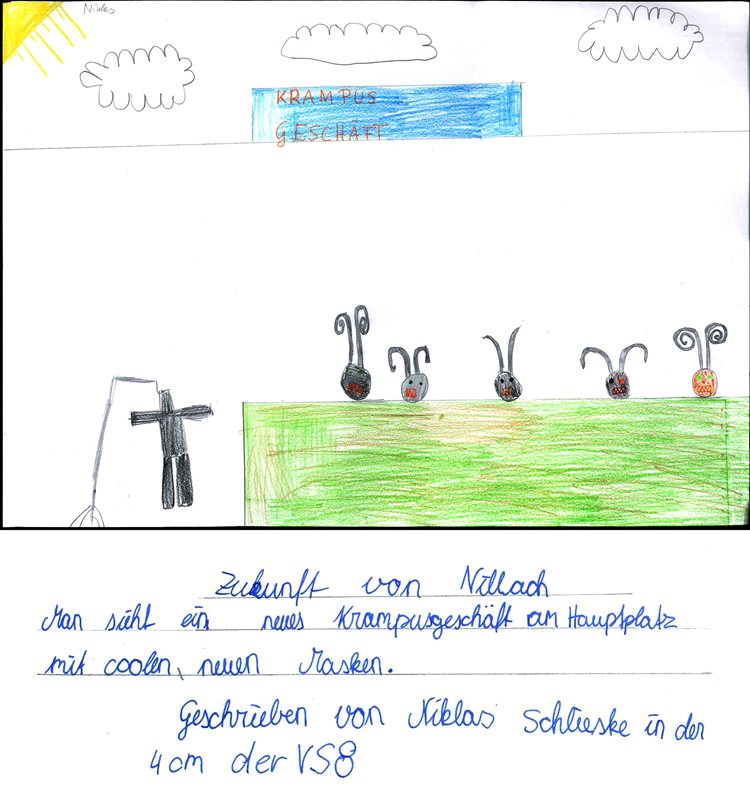 Niklas
KRAMPUS
GESCHÄFT
Zukunft von Villach
Man sieht ein neues Krampusgeschäft am Hauptplatz
mit coolen, neuen Masken.
Geschrieben von Niklas Schlieske in der
4cm der VS8